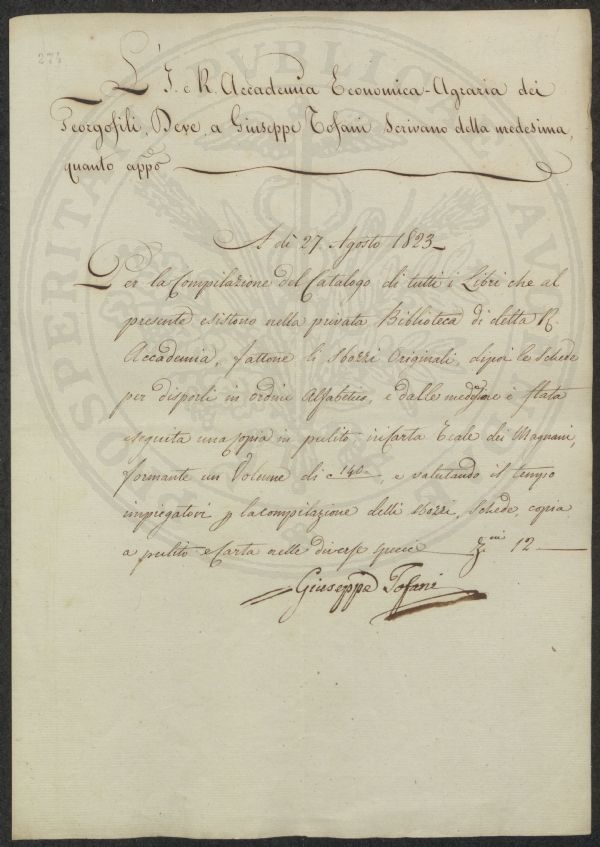 274
L' I. e R. Accademia Economica-Agraria dei
Georgofili, Deve a Giuseppe Tofani Scrivano della medesima,
quanto appo
A dì 27. Agosto 1823
Per la Compilazione del Catalogo di tutti i Libri che al
presente esistono nella privata Biblioteca di detta R.
Accademia, fattone li Sbozzi Originali, dipoi le Schede
per disporli in ordine Alfabetico, e dalle medesime è stata
eseguita una copia in pulito in Carta Reale dei Magnani,
formante un Volume di c 140, e valutando il tempo
impiegatovi p la compilazione delli sbozzi, Schede, copia
a pulito e Carta nelle diverse specie 12
Giuseppe Tofani
PROSPERITA PUBLICAE AV